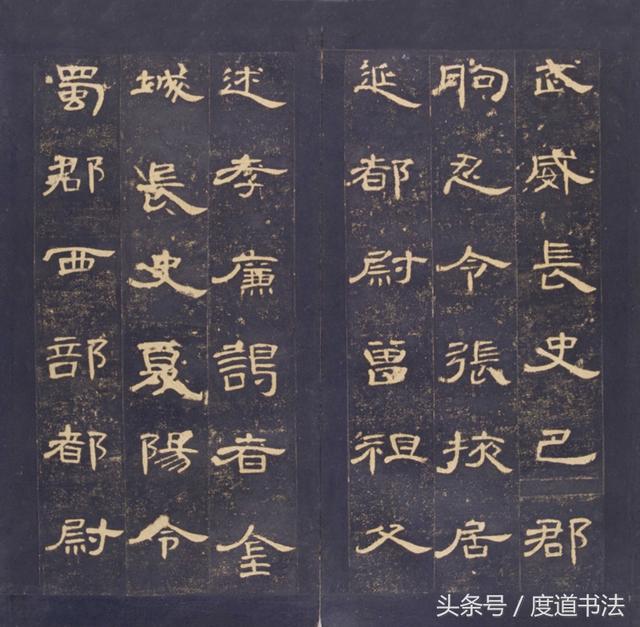 武威長史巴郡
朐忍令張掖居
延都尉曾祖父
述孝廉謁者金
城長史夏陽令
蜀郡西部都尉
头条号 / 度道书法